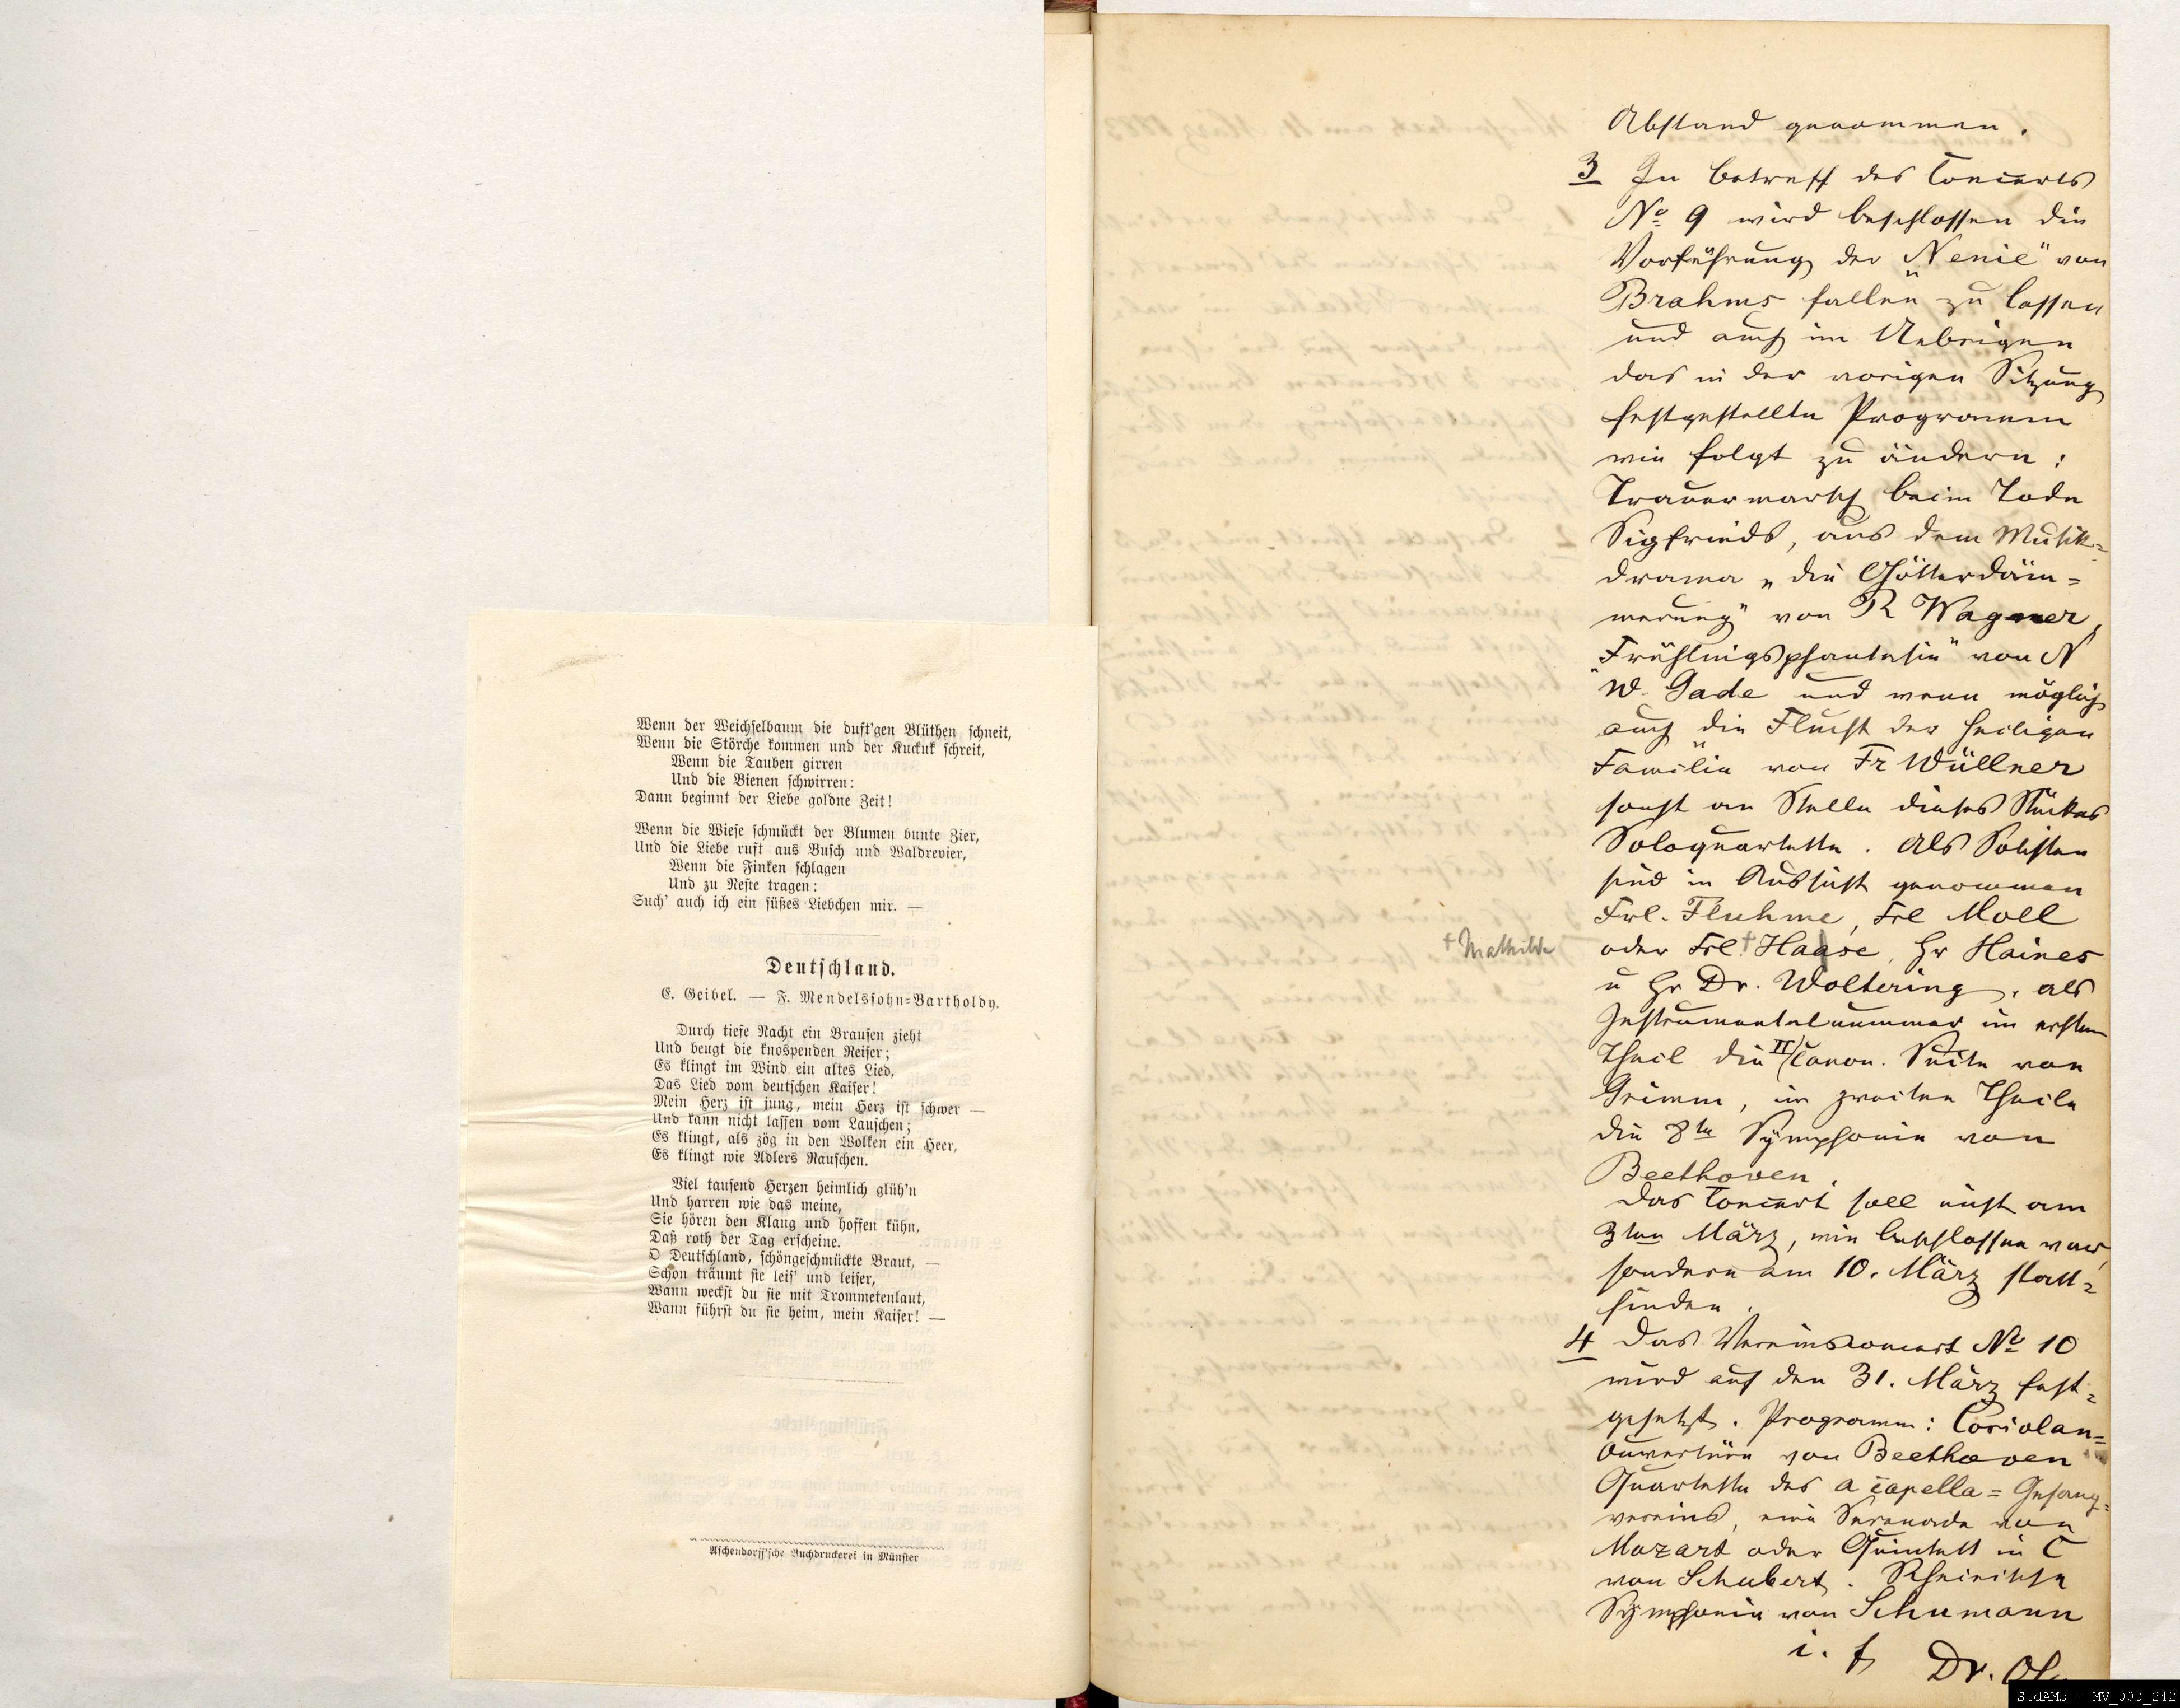 Wenn der Weichselbaum die duft'gen Blüthen schneit,
Wenn die Störche kommen und der Kuckuk schreit,
Wenn die Tauben girren
Und die Bienen schwirren:
Dann beginnt der Liebe goldne Zeit!
Wenn die Wiese schmückt der Blumen bunte Zier,
Und die Liebe ruft aus Busch und Waldrevier,
Wenn die Finken schlagen
Und zu Neste tragen:
Such' auch ich ein süßes Liebchen mir. —
Deutschland.
E. Geibel. — F. Mendelssohn-Bartholdy.
Durch tiefe Nacht ein Brausen zieht
Und beugt die knospenden Reiser;
Es klingt im Wind ein altes Lied,
Das Lied vom deutschen Kaiser!
Mein Herz ist jung, mein Herz ist schwer —
Und kann nicht lassen vom Lauschen;
Es klingt, als zög in den Wolken ein Heer,
Es klingt wie Adlers Rauschen.
Viel tausend Herzen heimlich glüh'n
Und harren wie das meine,
Sie hören den Klang und hoffen kühn,
Daß roth der Tag erscheine.
O Deutschland, schöngeschmückte Braut, —
Schon träumt sie leis' und leiser,
Wann weckst du sie mit Trommetenlaut,
Wann führst du sie heim, mein Kaiser! —
Aschendorff'sche Buchdruckerei in Münster
Abstand genommen.
3 In betreff des Concerts
No 9 wird beschlossen die
Vorführung der „Nenie" von
Brahms fallen zu lassen
und auch im Uebrigen
das in der vorigen Sitzung
festgestellte Programm
wie folgt zu ändern:
Trauermarsch beim Tode
Sigfrieds, aus dem Musik-
drama „die Götterdäm-
merung" von R Wagner,
„Frühlingsphantasie" von N
W. Gade und wenn möglich
auch die Flucht der heiligen
Familie von Fr Wüllner
sonst an Stelle dieses Stückes
Soloquartette. Als Solisten
sind in Aussicht genommen
Frl. Fluhme, Frl Moll
oder Frl. † Haase, Hr Haines
† Mathilde
u Hr Dr. Woltering. als
Instrumentalnummer im ersten
Theil die II Canon. Suite von
Grimm, im zweiten Theile
die 8te Symphonie von
Beethoven.
Das Concert soll nicht am
3ten März, wie beschlossen war,
sondern am 10. März statt-
finden.
4 Das Vereinsconcert No 10
wird auf den 31. März fest-
gesetzt. Programm: Coriolan-
Ouvertüre von Beethoven
Quartette des a capella-Gesang-
vereins, eine Serenade von
Mozart oder Quintett in C
von Schubert. Rheinische
Symphonie von Schumann
i. f. Dr.
StdAMs - MV_003_242